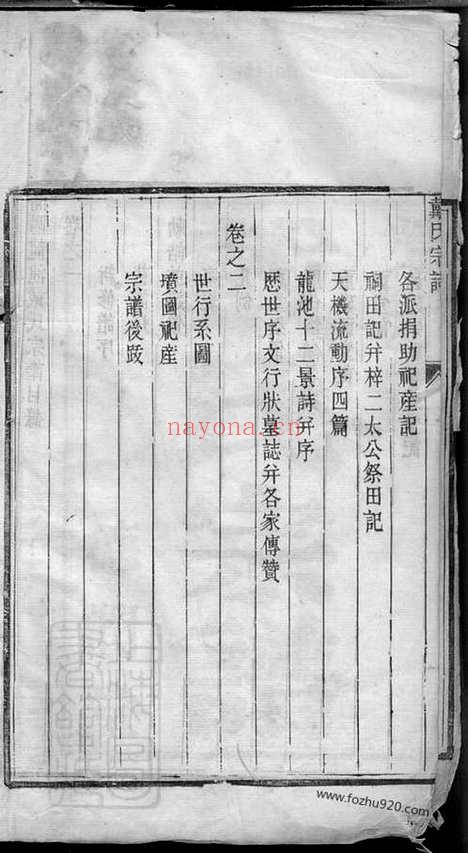 戴氏宗譜
各派捐助祀產記
祠田記弁梓二太公祭田記
天機流動序四篇
龍池十二景詩弁序
歷世序文行狀墓誌弁各家傳贊
卷之二
世行系圖
墳圖祀產
宗譜後跋
nayona.cn
www.fozhu920.com